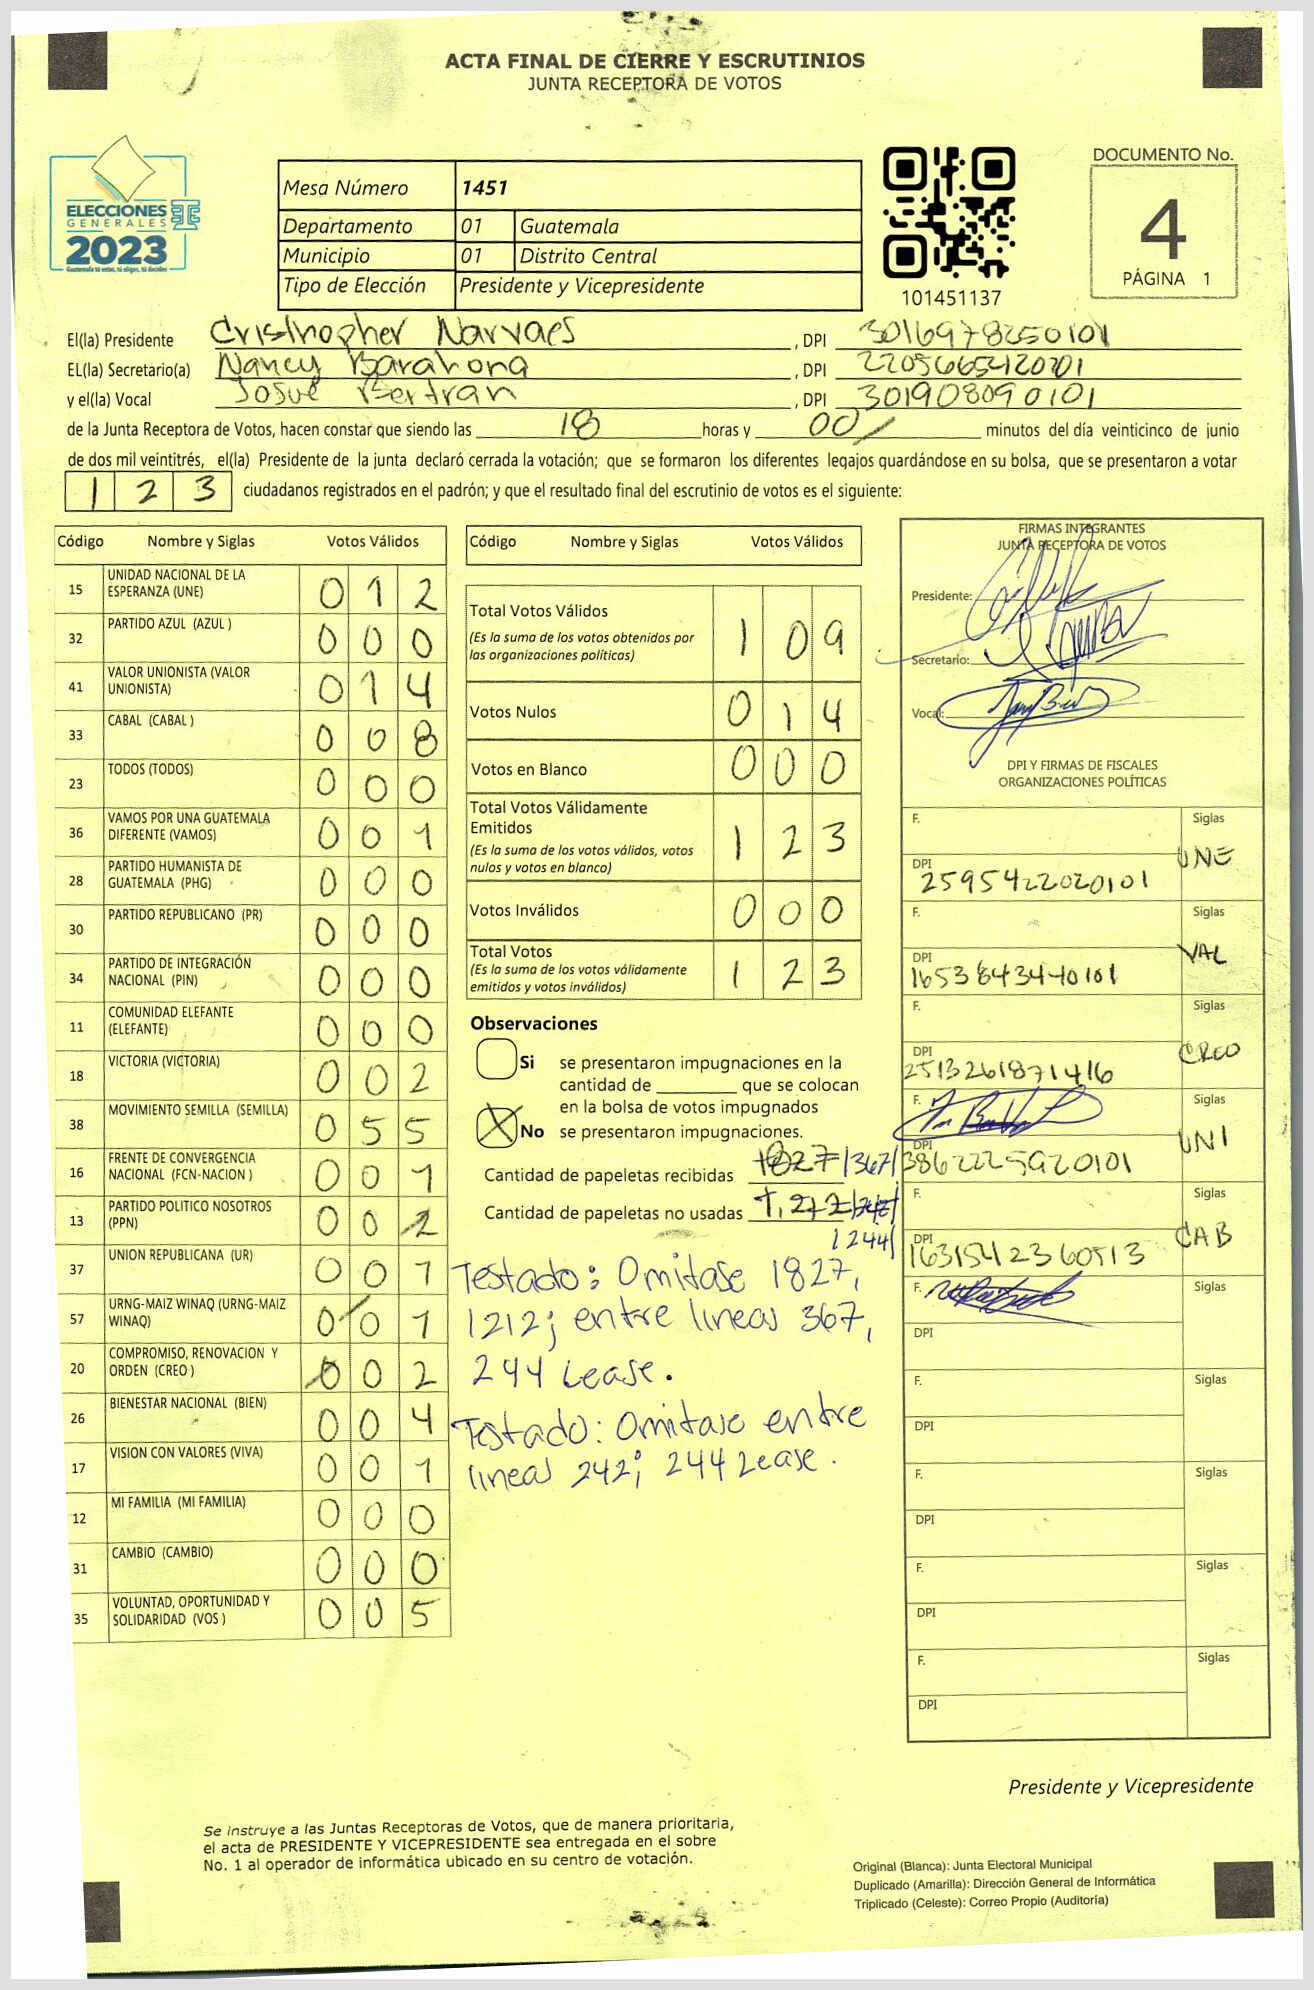 ACTA FINAL DE CIERRE Y ESCRUTINIOS
JUNTA RECEPTORA DE VOTOS
ELECCIONES
GENERALES
2023
Guatemala tú votas, tú eliges, tú decides
Mesa Número 1451
Departamento 01 Guatemala
Municipio 01 Distrito Central
Tipo de Elección Presidente y Vicepresidente
101451137
DOCUMENTO No.
4
PÁGINA 1
El(la) Presidente Cristhopher Narvaes, DPI 3016978250101
EL(la) Secretario(a) Nancy Barahona, DPI
y el(la) Vocal Josue Bertran, DPI 301908090101
de la Junta Receptora de Votos, hacen constar que siendo las 18 horas y 00/ minutos del día veinticinco de junio
de dos mil veintitrés, el(la) Presidente de la junta declaró cerrada la votación; que se formaron los diferentes legajos guardándose en su bolsa, que se presentaron a votar
1 2 3 ciudadanos registrados en el padrón; y que el resultado final del escrutinio de votos es el siguiente:
Código Nombre y Siglas Votos Válidos
15 UNIDAD NACIONAL DE LA ESPERANZA (UNE) 0 1 2
32 PARTIDO AZUL (AZUL ) 0 0 0
41 VALOR UNIONISTA (VALOR UNIONISTA) 0 1 4
33 CABAL (CABAL ) 0 0 8
23 TODOS (TODOS) 0 0 0
36 VAMOS POR UNA GUATEMALA DIFERENTE (VAMOS) 0 0 1
28 PARTIDO HUMANISTA DE GUATEMALA (PHG) 0 0 0
30 PARTIDO REPUBLICANO (PR) 0 0 0
34 PARTIDO DE INTEGRACIÓN NACIONAL (PIN) 0 0 0
11 COMUNIDAD ELEFANTE (ELEFANTE) 0 0 0
18 VICTORIA (VICTORIA) 0 0 2
38 MOVIMIENTO SEMILLA (SEMILLA) 0 5 5
16 FRENTE DE CONVERGENCIA NACIONAL (FCN-NACION ) 0 0 1
13 PARTIDO POLITICO NOSOTROS (PPN) 0 0 2
37 UNION REPUBLICANA (UR) 0 0 1
57 URNG-MAIZ WINAQ (URNG-MAIZ WINAQ) 0 0 1
20 COMPROMISO, RENOVACION Y ORDEN (CREO ) 0 0 2
26 BIENESTAR NACIONAL (BIEN) 0 0 4
17 VISION CON VALORES (VIVA) 0 0 1
12 MI FAMILIA (MI FAMILIA) 0 0 0
31 CAMBIO (CAMBIO) 0 0 0
35 VOLUNTAD, OPORTUNIDAD Y SOLIDARIDAD (VOS ) 0 0 5
Código Nombre y Siglas Votos Válidos
Total Votos Válidos 1 0 9
(Es la suma de los votos obtenidos por
las organizaciones políticas)
Votos Nulos 0 1 4
Votos en Blanco 0 0 0
Total Votos Válidamente
Emitidos 1 2 3
(Es la suma de los votos válidos, votos
nulos y votos en blanco)
Votos Inválidos 0 0 0
Total Votos 1 2 3
(Es la suma de los votos válidamente
emitidos y votos inválidos)
Observaciones
Si se presentaron impugnaciones en la
cantidad de ________ que se colocan
en la bolsa de votos impugnados
No se presentaron impugnaciones.
Cantidad de papeletas recibidas 1827 /367/
Cantidad de papeletas no usadas
/244/
Testado: Omitase 1827,
1212; entre lineas 367,
244 Lease.
Testado: Omitase entre
lineas 242; 244 Lease.
FIRMAS INTEGRANTES
JUNTA RECEPTORA DE VOTOS
Presidente:
Secretario:
Vocal:
DPI Y FIRMAS DE FISCALES
ORGANIZACIONES POLÍTICAS
F. Siglas
DPI 2595422020101 UNE
F. Siglas
DPI 1653843440101 VAL
F. Siglas
DPI 2513261871416 CREO
F. Siglas
DPI 3862225920101 UNI
F. Siglas
DPI 1631542360513 CAB
F. Siglas
DPI
F. Siglas
DPI
F. Siglas
DPI
F. Siglas
DPI
F. Siglas
DPI
Presidente y Vicepresidente
Se instruye a las Juntas Receptoras de Votos, que de manera prioritaria,
el acta de PRESIDENTE Y VICEPRESIDENTE sea entregada en el sobre
No. 1 al operador de informática ubicado en su centro de votación.
Original (Blanca): Junta Electoral Municipal
Duplicado (Amarilla): Dirección General de Informática
Triplicado (Celeste): Correo Propio (Auditoría)